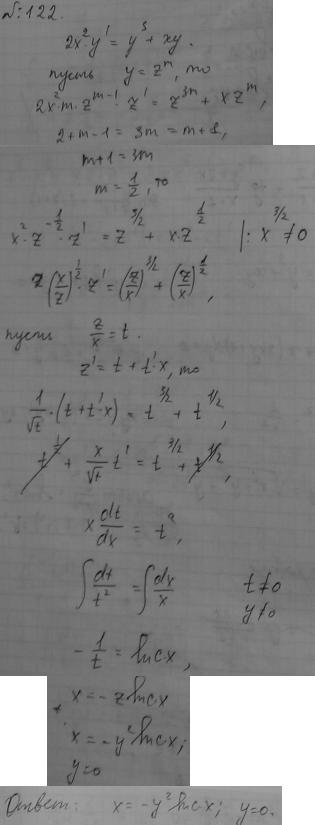 №: 122.
2x²y' = y³ + xy.
пусть y = zᵐ, то
2x²·m·zᵐ⁻¹·z' = z³ᵐ + xzᵐ,
2+m-1 = 3m = m+1,
m+1 = 3m
m = 1/2, то
x²·z^(-1/2)·z' = z^(3/2) + x·z^(1/2) |: x^(3/2) ≠ 0
(x/z)^(1/2)·z' = (z/x)^(3/2) + (z/x)^(1/2),
пусть z/x = t.
z' = t + t'·x, то
1/√t·(t + t'·x) = t^(3/2) + t^(1/2),
t^(1/2) + x/√t t' = t^(3/2) + t^(1/2),
x dt/dx = t²,
∫dt/t² = ∫dx/x t≠0
y≠0
-1/t = ln cx,
x = -z ln cx
x = -y² ln cx;
y=0
Ответ: x = -y² ln cx; y=0.